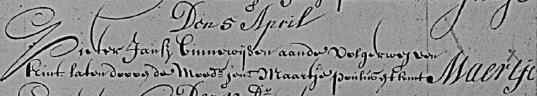 Den 5 April
Pieter Jansz Binnewijsen aande Volgerweg een
kint laten doopen de Moeder sent Maartje poulus gt kint Maertje